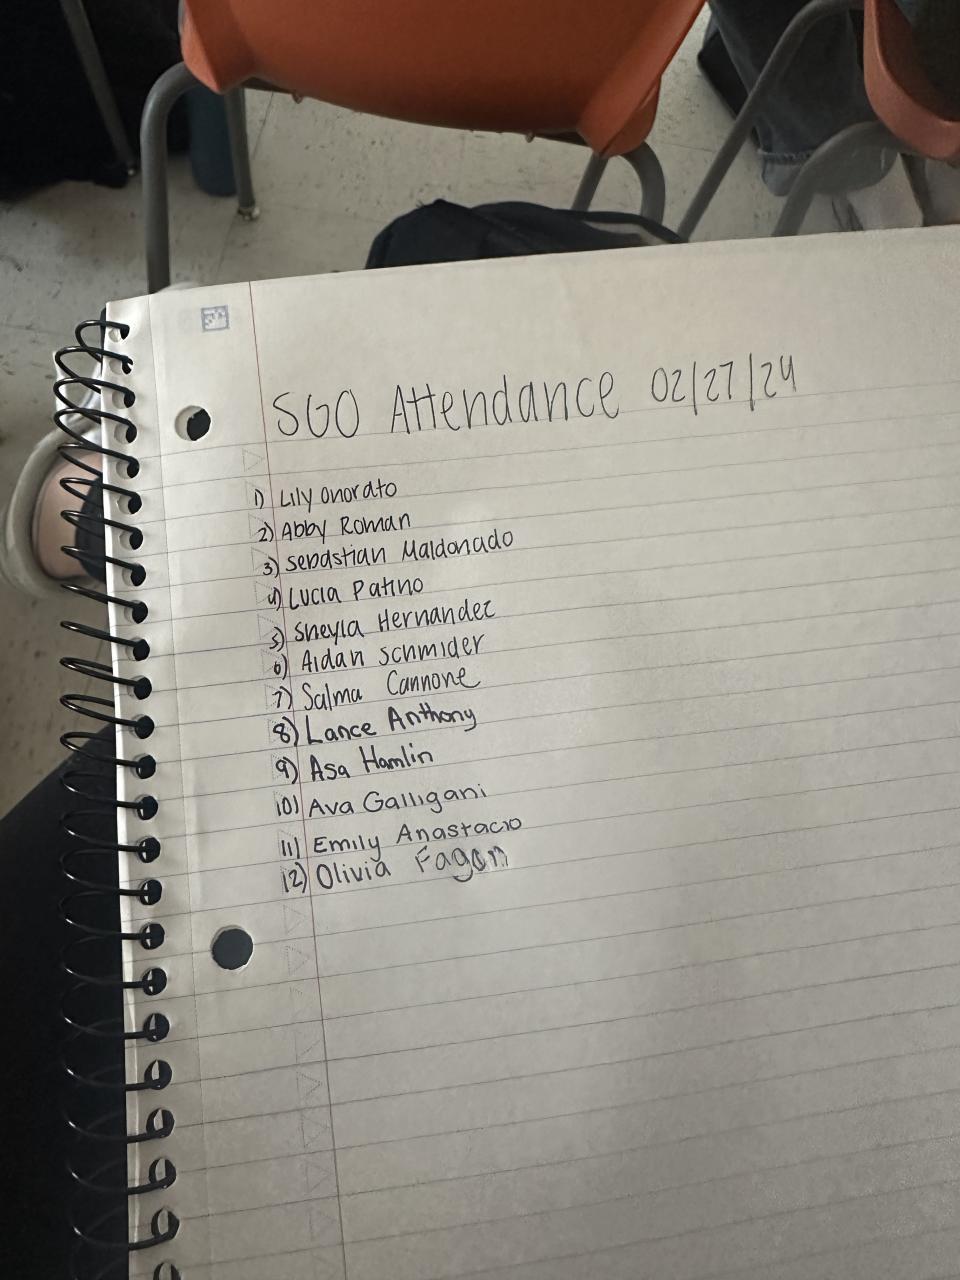 SGO Attendance 02/27/24
1) Lily Onorato
2) Abby Roman
3) Sebastian Maldonado
4) Lucia Patino
5) Sheyla Hernandez
6) Aidan Schmider
7) Salma Cannone
8) Lance Anthony
9) Asa Hamlin
10) Ava Galligani
11) Emily Anastacio
12) Olivia Fagan